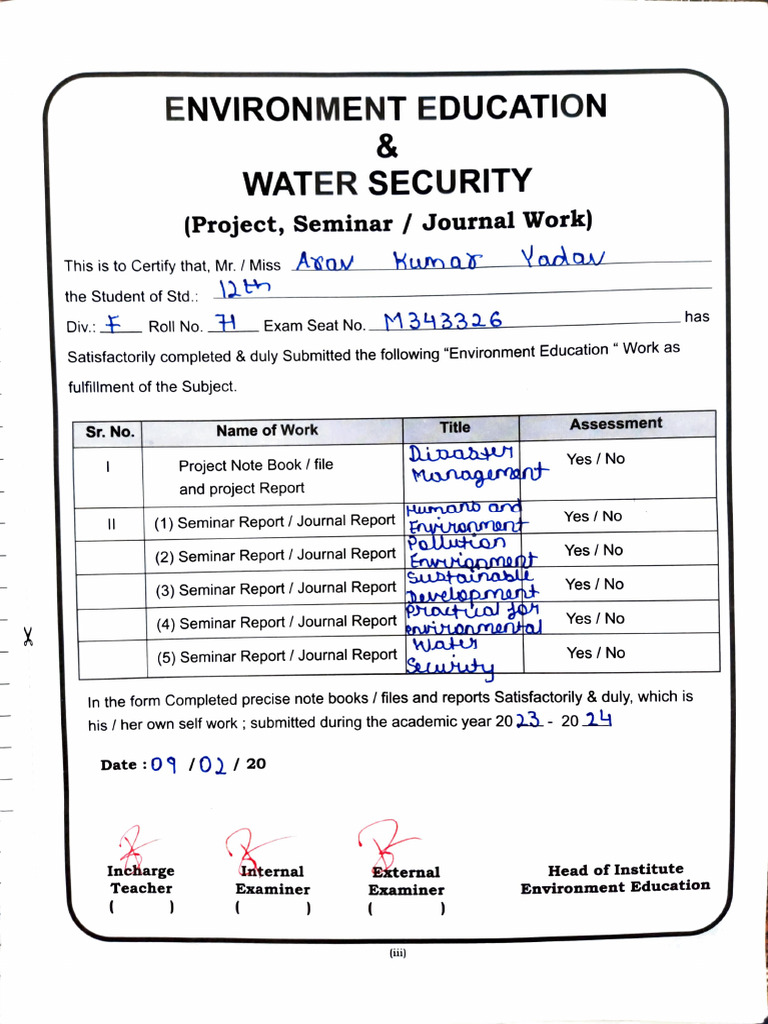 ENVIRONMENT EDUCATION
&
WATER SECURITY
(Project, Seminar / Journal Work)
This is to Certify that, Mr. / Miss Arav Kumar Yadav
the Student of Std.: 12th
Div.: F Roll No. 71 Exam Seat No. M343326 has
Satisfactorily completed & duly Submitted the following “Environment Education “ Work as
fulfillment of the Subject.
Sr. No. Name of Work Title Assessment
I Project Note Book / file Disaster Yes / No
and project Report Management
II (1) Seminar Report / Journal Report Humans and Environment Yes / No
(2) Seminar Report / Journal Report Pollution Envrionment Yes / No
(3) Seminar Report / Journal Report Sustainable Development Yes / No
(4) Seminar Report / Journal Report Practical for environmental Yes / No
(5) Seminar Report / Journal Report Water Security Yes / No
In the form Completed precise note books / files and reports Satisfactorily & duly, which is
his / her own self work ; submitted during the academic year 2023 - 2024
Date : 09 / 02 / 20
Incharge Internal External Head of Institute
Teacher Examiner Examiner Environment Education
( ) ( ) ( )
(iii)